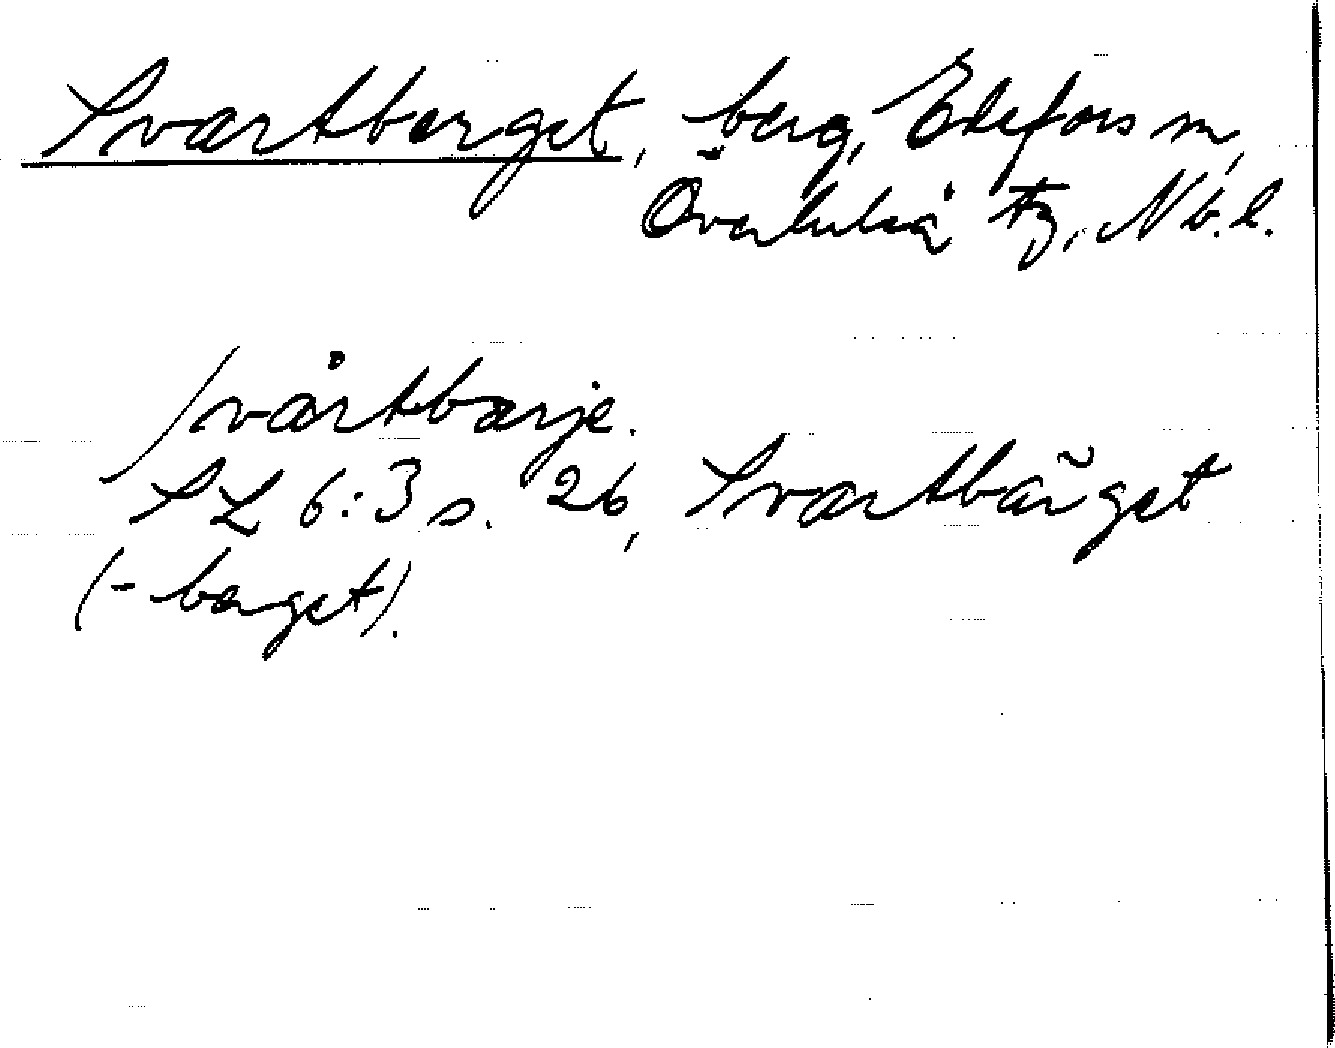 Svartberget, berg, Edefors sn,
Överluleå tg, Nb.l.
svårtbarje.
SL 6:3 s. 26, Svartbärget
(-berget).